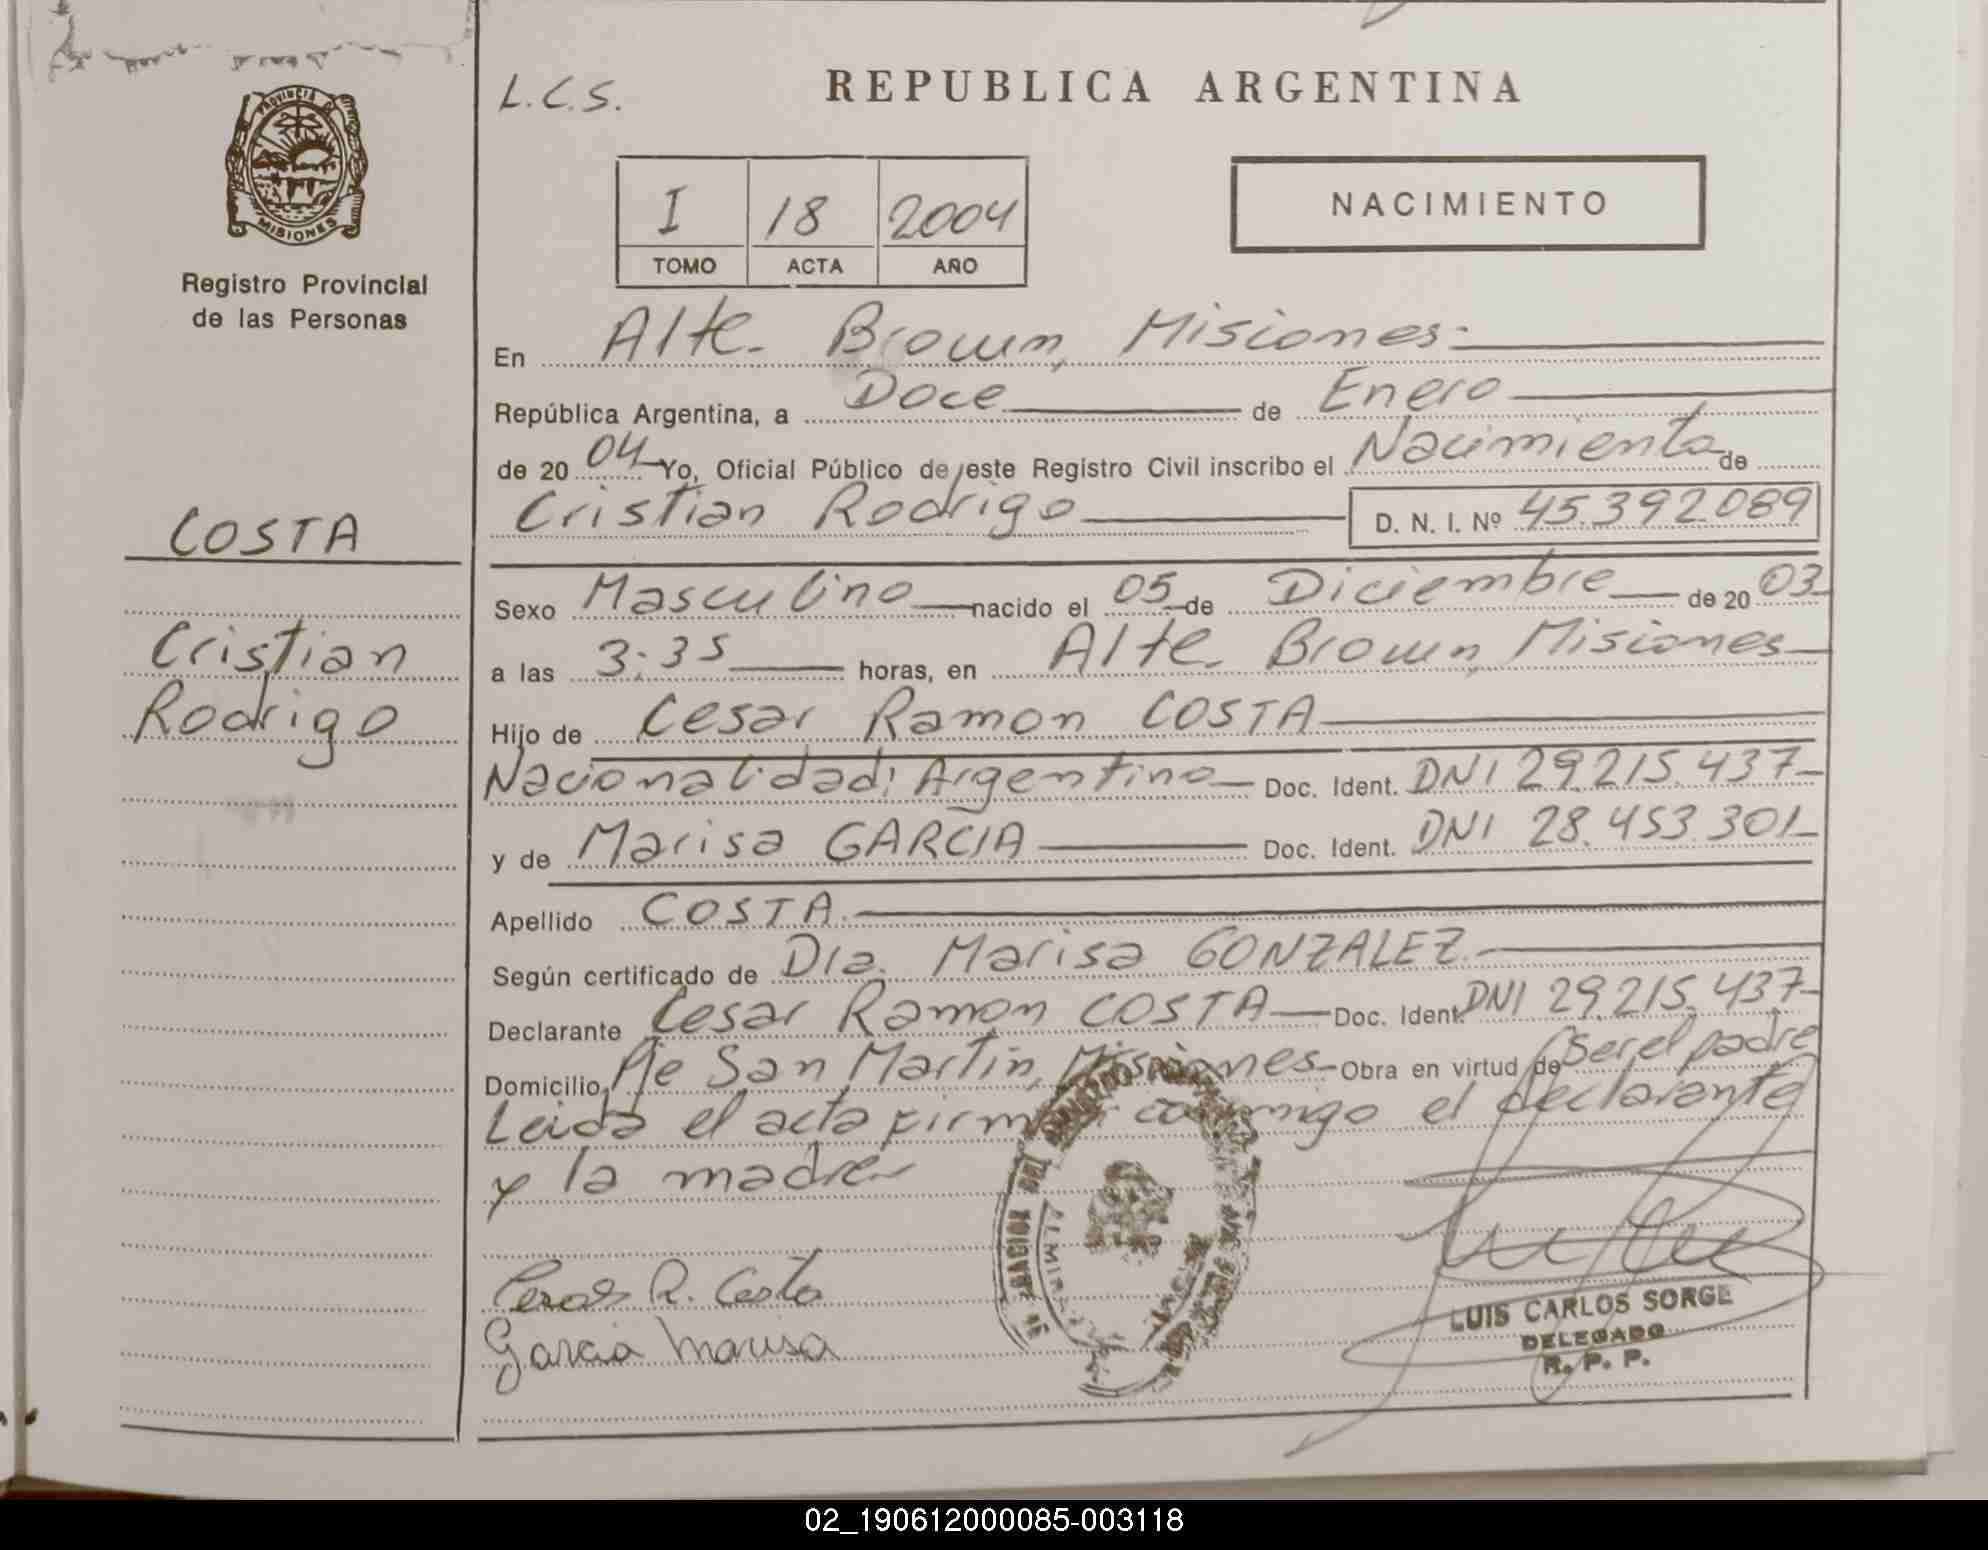 PROVINCIA D
MISIONES
Registro Provincial
de las Personas
COSTA
Cristian
Rodrigo
L.C.S.
REPUBLICA ARGENTINA
I 18 2004
TOMO ACTA AÑO
NACIMIENTO
En Alte. Brown, Misiones.
República Argentina, a Doce de Enero
de 20 04 Yo, Oficial Público de este Registro Civil inscribo el Nacimiento de
Cristian Rodrigo D. N. I. Nº 45.392.089
Sexo Masculino nacido el 05 de Diciembre de 20 03
a las 3:35 horas, en Alte. Brown, Misiones
Hijo de Cesar Ramon COSTA
Nacionalidad: Argentino Doc. Ident. DNI 29.215.437
y de Marisa GARCIA Doc. Ident. DNI 28.453.301
Apellido COSTA.
Según certificado de Dra. Marisa GONZALEZ.
Declarante Cesar Ramon COSTA Doc. Ident. DNI 29.215.437
Domicilio Pje San Martin, Misiones Obra en virtud de ser el padre
Leida el acta firman conmigo el declarante
y la madre
Cesar R. Costa
Garcia Marisa
LUIS CARLOS SORGE
DELEGADO
R. P. P.
02_190612000085-003118